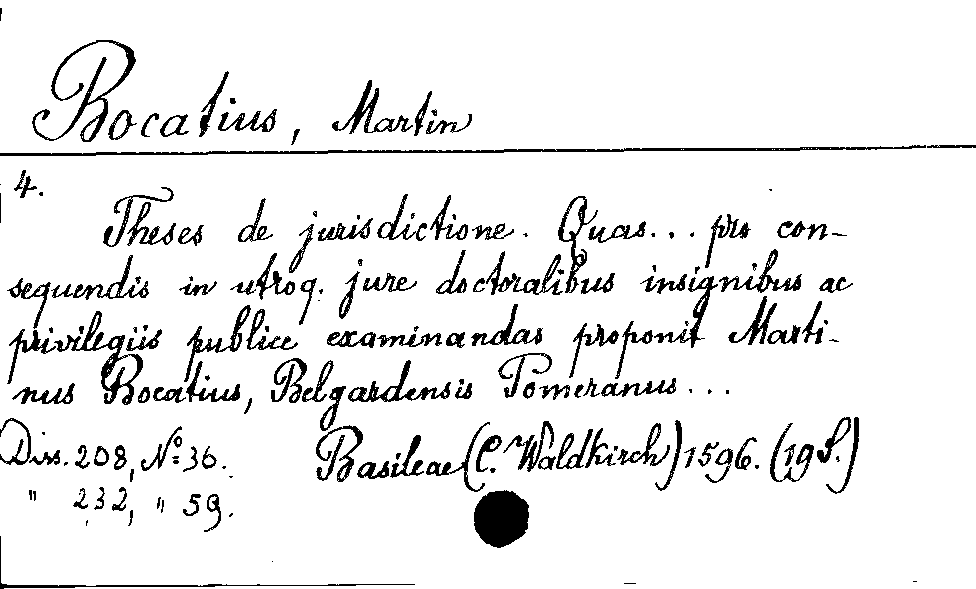 Bocatius, Martin
4.
Theses de jurisdictione. Quas... pro con-
sequendis in utroq. jure doctoralibus insignibus ac
privilegiis publice examinandas proponit Marti-
nus Bocatius, Belgardensis Pomeranus...
Diss. 208, No: 36. Basileae (C. Waldkirch) 1596. (19 S.)
" 232, " 59.